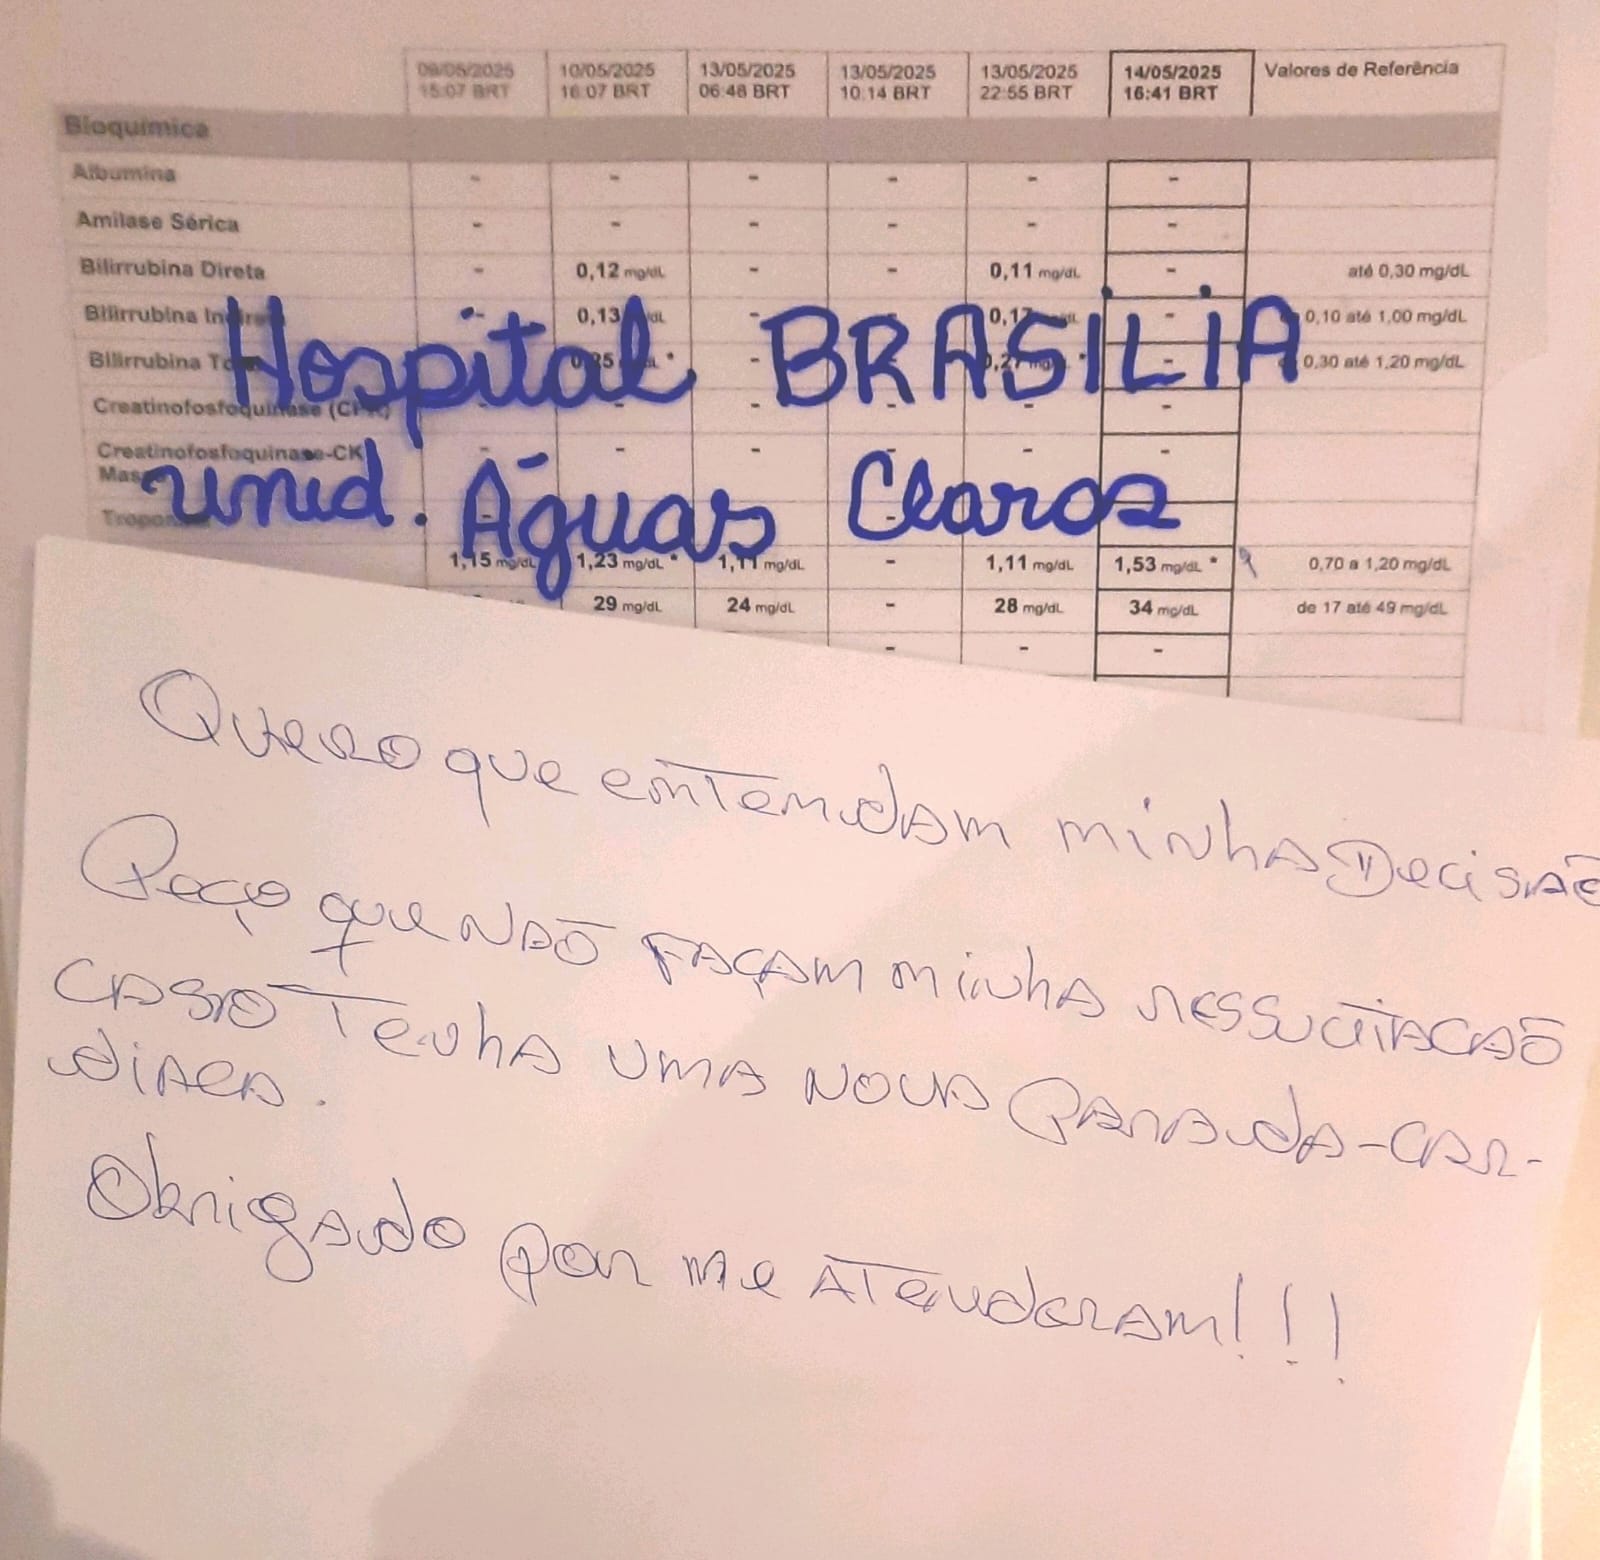 09/05/2025 10/05/2025 13/05/2025 13/05/2025 13/05/2025 14/05/2025 Valores de Referência
15:07 BRT 16:07 BRT 06:48 BRT 10:14 BRT 22:55 BRT 16:41 BRT
Bioquímica
Albumina - - - - - -
Amilase Sérica - - - - - -
Bilirrubina Direta - 0,12 mg/dL - - 0,11 mg/dL - até 0,30 mg/dL
Bilirrubina 0,13 - 0,10 até 1,00 mg/dL
Bilirrubina - 0,30 até 1,20 mg/dL
Hospital BRASILIA
Creatinofosfoquinase
Creatinofosfoquinase-CK
unid. Águas Claras
1,15 mg/dL 1,23 mg/dL * 1,11 mg/dL - 1,11 mg/dL 1,53 mg/dL * 0,70 a 1,20 mg/dL
29 mg/dL 24 mg/dL - 28 mg/dL 34 mg/dL de 17 até 49 mg/dL
- - -
Quero que entendam minha Decisão
Peço que não façam minha ressucitacaõ
caso tenha uma nova Parada-car-
diaca.
Obrigado por me atenderam!!!